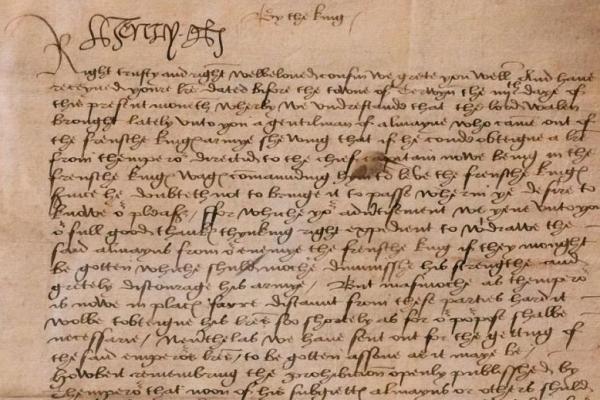 By the king
Henry R
Right trusty and right welbeloved cousin we grete you well And have
receyved youre lre dated before the towne of Terwyn the daye of
this present moneth wherby we understande that the lord Walen
brought lately unto you a gentilman of almayne who came out of
the frenshe king armye shewing that if he coude obteigne a lre
from themperor directed to the chief capitain nowe being in the
frenshe king wag comanding to leve the frenshe king
he doubteth not to bringe it to passe wherin ye desire to
knowe or pleasr / ffor whiche yor advertisement we yeve unto you
or full good thank thynking right expedient to wtdrawe the
said almayns from or enemye the frenshe king if they mought
be gotten whiche shulde moche dimynisshe his strengthe and
gretely discourage his armye / But masmoche as themperor
is nowe in place farre distaunt from these parties hard it
wolbe tobteigne his lres soo shortely as for or prpose shalbe
necessarie / Nevertheles we have sent out for the getting of
the said emperors lres / to be gotten assone as it maye be /
Howbeit remembring the prohibicion openly publisshed by
themperor that noon of his subgett almayns or others shuld